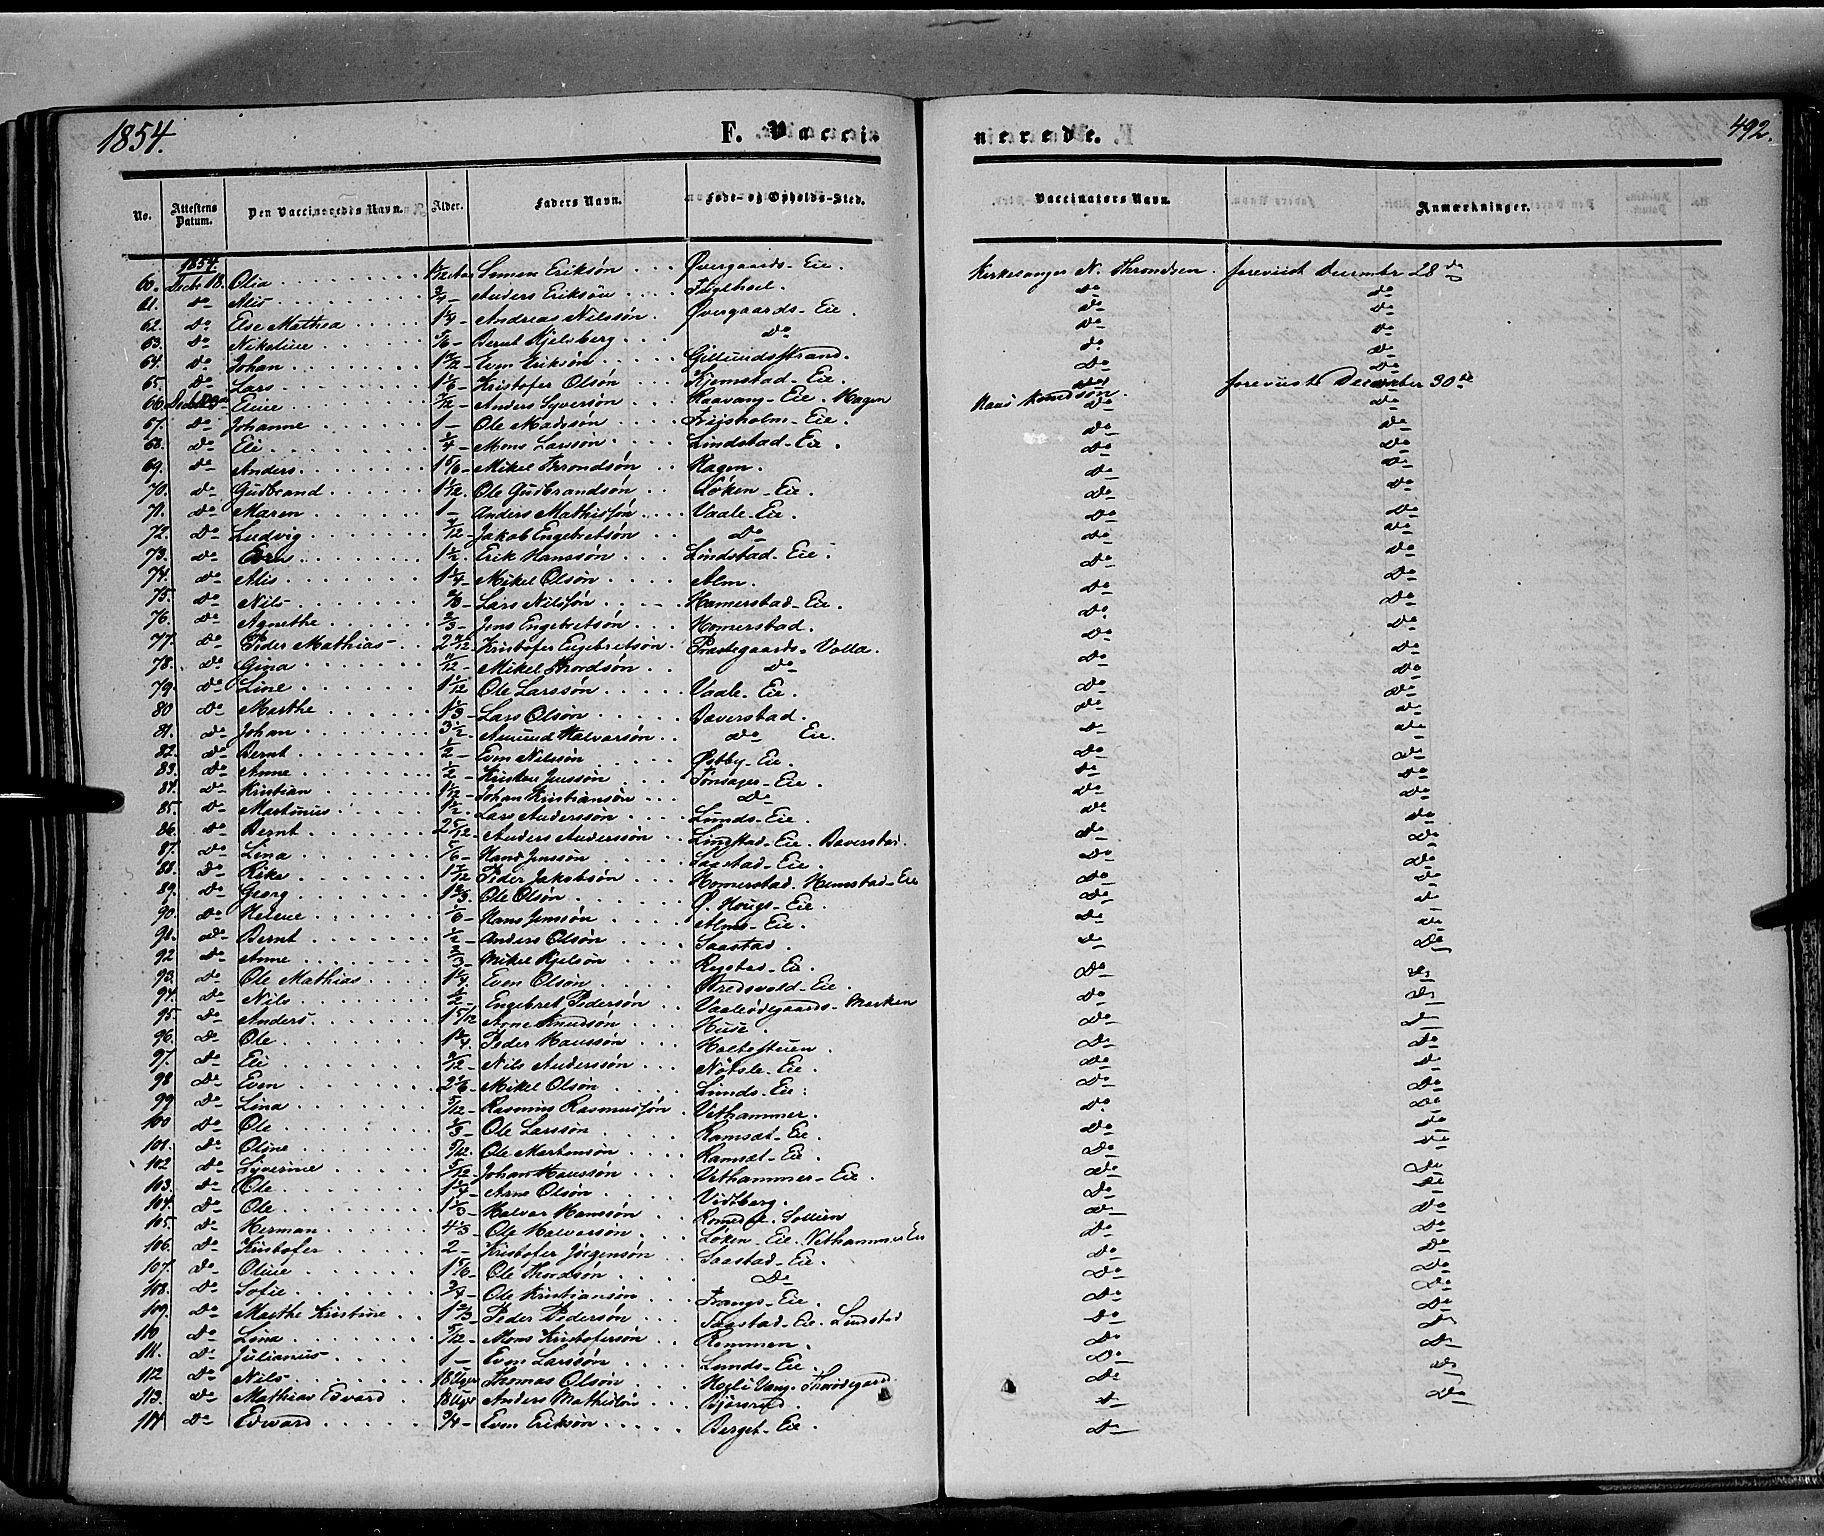 1854.
F. Vacci-
nerede.
492.
No. Attestens Datum. Den Vaccineredes Navn. Alder. Faders Navn. Føde- og Opholds-Sted. Vaccinators Navn. Anmærkninger.
1854
60. Decbr 18. Olia Simen Eriksøn Øvergaards-Eie. Kirkesanger N. Throndsen. forevist December 28de
61. Do Alis 3/4 - Anders Eriksøn Do Do
62. Do Else Mathea 1 1/4 - Andreas Nilssøn. Øvergaards-Eie. Do Do
63. Do Nikoline 5/6 - Bernt Kjelsberg Do Do Do
64. Do Johan Even Eriksøn Gillundsstrand. Do Do
65. Do Lars 1 1/6 - Kristofer Olsøn Kjemstad-Eie. Do Do
66. Eline Anders Syversøn Raavang-Eie. Hagen Hans Knudsøn. foreviist December 30te
67. Do Johanne 1 - Ole Madssøn Frijsholm-Eie. Do Do
68. Do Eli 3/4 - Mons Larssøn Lindstad-Eie. Do Do
69. Do Anders 1 5/6 - Mikel Throndsøn Hagen. Do Do
70. Do Gudbrand 1 1/12 - Ole Gudbrandsøn Løken-Eie. Do Do
71. Do Maren 1 - Anders Mathissøn Vaale-Eie. Do Do
72. Do Ludvig 7/12 - Jakob Engebretsøn Do Do Do
73. Do Even 1 1/2 - Erik Hanssøn Lindstad-Eie. Do Do
74. Do Alis 1 1/4 - Mikel Olsøn Alm. Do Do
75. Do Nils Lars Nilssøn Homerstad-Eie. Do Do
76. Do Agnethe 2/3 - Jens Engebretsøn Homerstad. Do Do
77. Do Peder Mathias Kristofer Engebretsøn Præstegaards-Volla. Do Do
78. Do Gina 11/12 - Mikel Thordsøn Do Do Do
79. Do Line 1 1/12 Ole Larssøn Vaale-Eie. Do Do
80 Do Marthe 1 1/3 - Lars Olsøn Baverstad. Do Do
81. Do Johan 3 1/2 - Amund Halvorsøn Do Eie. Do Do
82. Do Bernt 1/2 - Even Nilssøn Østby-Eie. Do Do
83. Do Anne 1/2 - Kristen Jenssøn Tønsager-Eie. Do Do
84. Do Kristian 1 1/12 - Johan Kristiansøn Do Do Do
85. Do Martinus 1 1/2. Lars Anderssøn Lunds-Eie. Do Do
86. Do Bernt 2 5/12 - Anders Anderssøn Lingstad-Eie. Baverstad. Do Do
87. Do Lina Hans Jenssøn Saastad-Eie. Do Do
88. Do Rika 1 1/12 - Peder Jakobsøn Homerstad. Hemstad-Eie Do Do
89. Do Georg 1 2/3 - Ole Olsøn Ø. Hougs-Eie. Do Do
90. Do Helene Hans Jenssøn Alms-Eie. Do Do
91. Do Bernt 1/2 - Anders Olsøn Saastad. Do Do
92 Do Anne 2/3 - Mikel Kjelsøn Rystad-Eie. Do Do
93. Do Ole Mathias 1 1/4. Even Olsøn Stredsvold-Eie. Do Do
94. Do Nils 1/2 - Engebret Pedersøn Vaaleødegaards-Marken Do Do
95. Do Anders 1 5/12 Arne Knudsøn Huse. Do Do
96. Do Ole 1 3/4. Peder Hanssøn Holtestuen. Do Do
97. Do Eli Nils Anderssøn Nøtsle-Eie. Do Do
98 Do Even 2 5/6 - Mikel Olsøn Lunds-Eie. Do Do
99 Do Lina Rasmus Rasmussøn. Vethammer. Do Do
100 Do Ole 1/3 - Ole Larssøn Ramsæt-Eie. Do Do
101. Do Oline 7/12. Ole Martinsøn Ramsæt-Eie. Do Do
102 Do Syverine 5/12 - Johan Hanssøn Vethammer-Eie. Do Do
103. Do Ole 1 1/4 - Arne Olsøn Vidtberg. Do Do
104. Do Ole 1 1/3 - Halvor Hanssøn Romedal. Sollien Do Do
105. Do Herman 4 1/3 - Ole Halvorsøn Løken-Eie. Vethammer Eie Do Do
106. Do Kristofer 2 - Kristofer Jørgensøn Saastad-Eie. Do Do
107. Do Oline 1 5/6 - Ole Thordsøn Do Do Do
108. Do Sofie 3/4 - Ole Kristiansøn Frangs-Eie. Do Do
109. Do Marthe Kristine 1 2/3 - Peder Pedersøn Saastad-Eie. Lundstad Do Do
110 Do Lina 5/12 - Mons Kristofersøn Rommen. Do Do
111. Do Julianus 1 - Even Larssøn Lunds-Eie. Do Do
112 Do Nils 18 Uger Thomas Olsøn Hogli Vang. Do Do
113. Do Mathias Edvard 18 Uger Anders Mathissøn Bjørsrud. Do Do
114. Do Edward 3/4 - Even Eriksøn Berget-Eie. Do